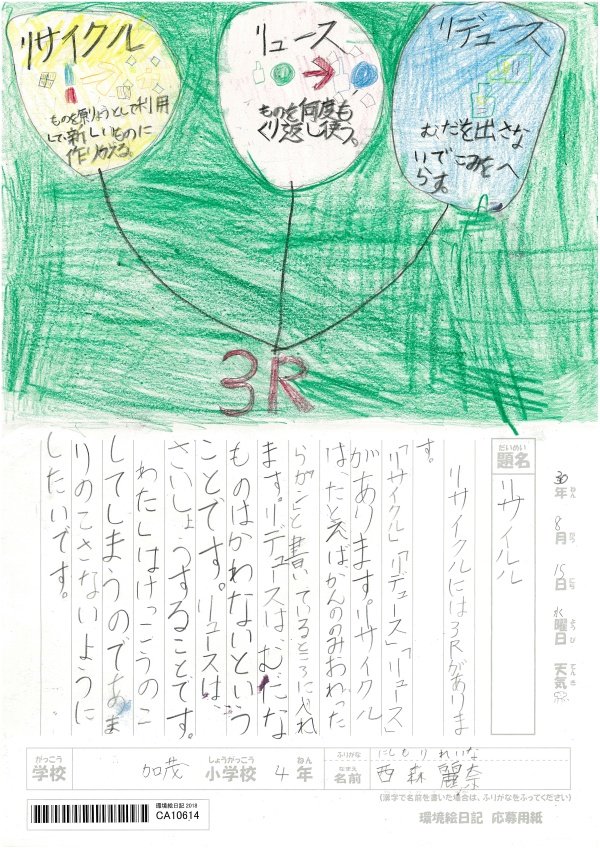 リサイクル
ものを原りょうとして利用
して新しいものに
作りかえる。
リュース
ものを何度も
くり返し使う。
リデュース
むだを出さな
いでごみをへ
らす。
3R
30年 8月 15日 水曜日 天気
ねん がつ にち ようび てんき
だいめい
題名
リサイルル
リサイクルには3Rがありま
す。
「リサイクル」「リデュース」「リュース」
があります。リサイクル
は、たとえばかんののみおわった
らかんと書いているところに入れ
ます。リデュースは、むだな
ものはかわないという
ことです。リュースは、
さいしょうすることです。
わたしはけっこうのこ
してしまうのであま
りのこさないように
したいです。
がっこう しょうがっこう ねん
学校 加茂 小学校 4年
ふりがな にしもり れいな
なまえ
名前 西森麗奈
(漢字で名前を書いた場合は、ふりがなをふってください)
環境絵日記 2018
CA10614
環境絵日記 応募用紙